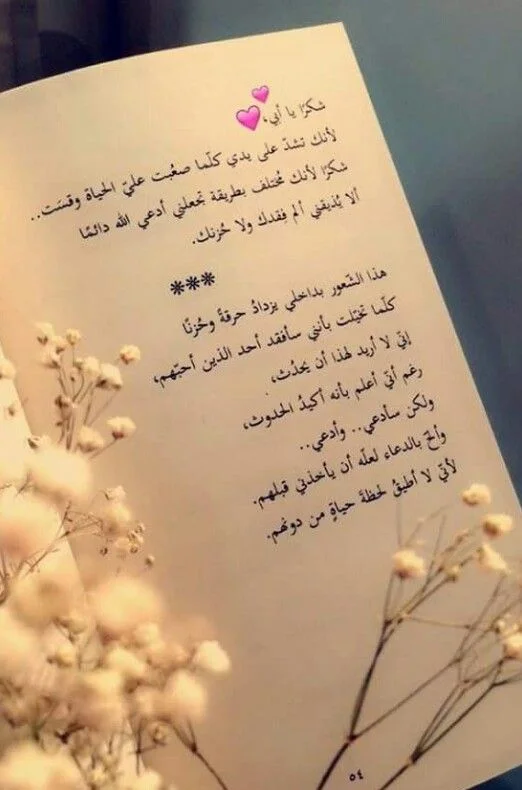 شكرًا يا أبي،
لأنك تشدّ على يدي كلّما صعُبت عليّ الحياة وقست..
شكرًا لأنك مُختلف بطريقة تجعلني أدعي الله دائمًا
ألا يُذيقني ألم فِقدك ولا حُزنك.
***
هذا الشّعور بداخلي يزدادُ حرقةً وحُزنًا
كلّما تخيّلت بأنني سأفقد أحد الذين أحبّهم،
إنّي لا أريد لهذا أن يحدُث،
رغم أنّي أعلم بأنه أكيدُ الحدوث،
ولكن سأدعي.. وأدعي..
وألحّ بالدعاء لعلّه أن يأخذني قبلهم.
لأنّي لا أطيقُ لحظةَ حياةٍ من دونهم.
٥٤